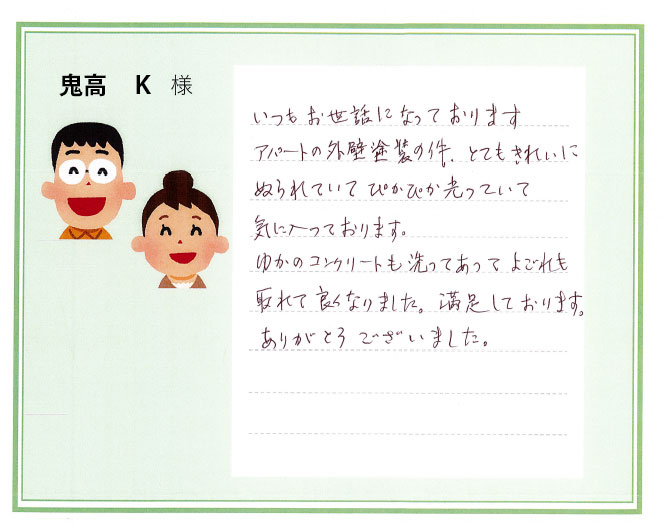 鬼高 K 様
いつもお世話になっております
アパートの外壁塗装の件、とてもきれいに
ぬられていてぴかぴか光っていて
気に入っております。
ゆかのコンクリートも洗ってあってよごれも
取れて良くなりました。満足しております。
ありがとうございました。